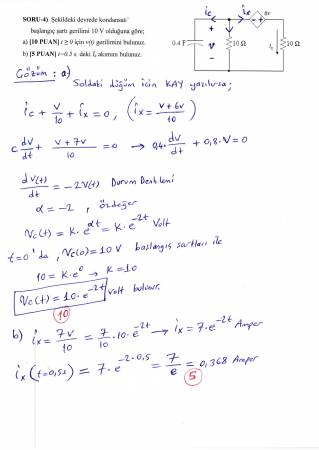 SORU-4) Şekildeki devrede kondansatör
başlangıç şartı gerilimi 10 V olduğuna göre;
a) [10 PUAN] t ≥ 0 için v(t) gerilimini bulunuz.
b) [5 PUAN] t=0.5 s deki Iₓ akımını bulunuz.
i_c i_x 6v
0.4 F + v - 10 Ω Iₓ 10 Ω
Çözüm: a)
Soldaki düğüm için KAY yazılırsa;
i_c + v/10 + i_x = 0, (i_x = (v+6v)/10)
C dv/dt + (v+7v)/10 = 0 → 0,4·dv/dt + 0,8·v = 0
dv(t)/dt = -2v(t) Durum Denklemi
α = -2, özdeğer
v_c(t) = K·e^αt = K·e^-2t Volt
t=0'da, v_c(0) = 10V başlangıç şartları ile
10 = K·e^0 → K = 10
v_c(t) = 10·e^-2t volt bulunur.
10
b) i_x = 7v/10 = 7/10·10·e^-2t → i_x = 7·e^-2t Amper
i_x(t=0,5s) = 7·e^-2·0,5 = 7/e = 0,368 Amper
5